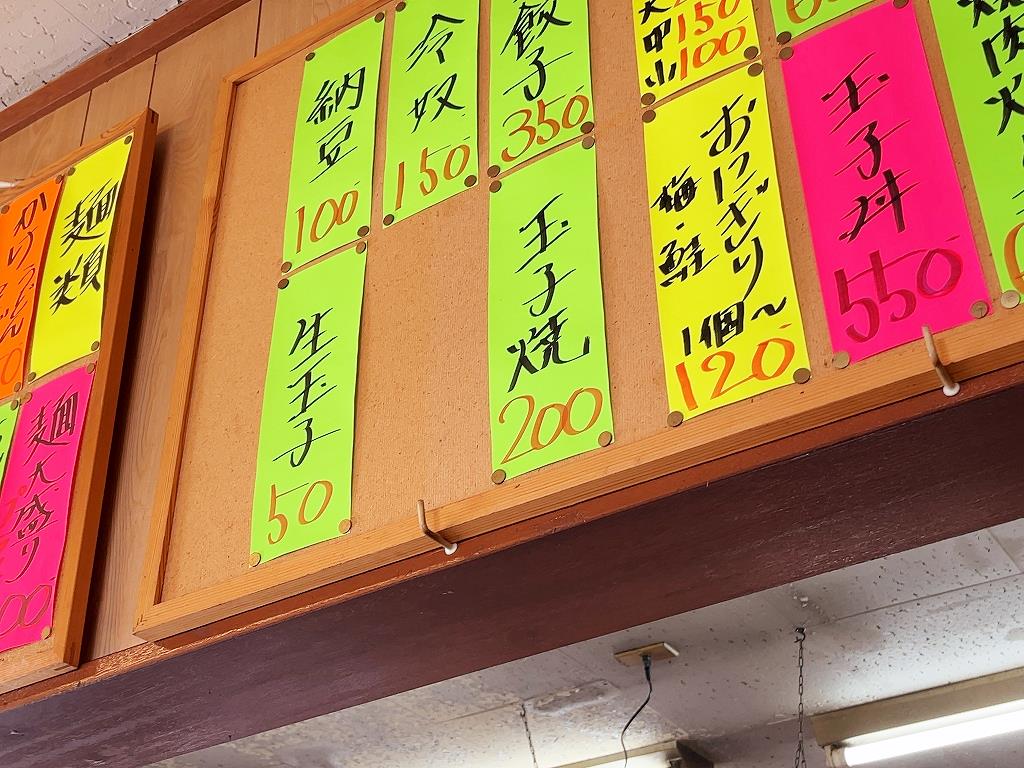 麺類
麺大盛り
納豆
100
生玉子
50
冷奴
150
餃子
350
玉子焼
200
150
中
小100
おにぎり
梅・鮭
1個〜
120
玉子丼
550